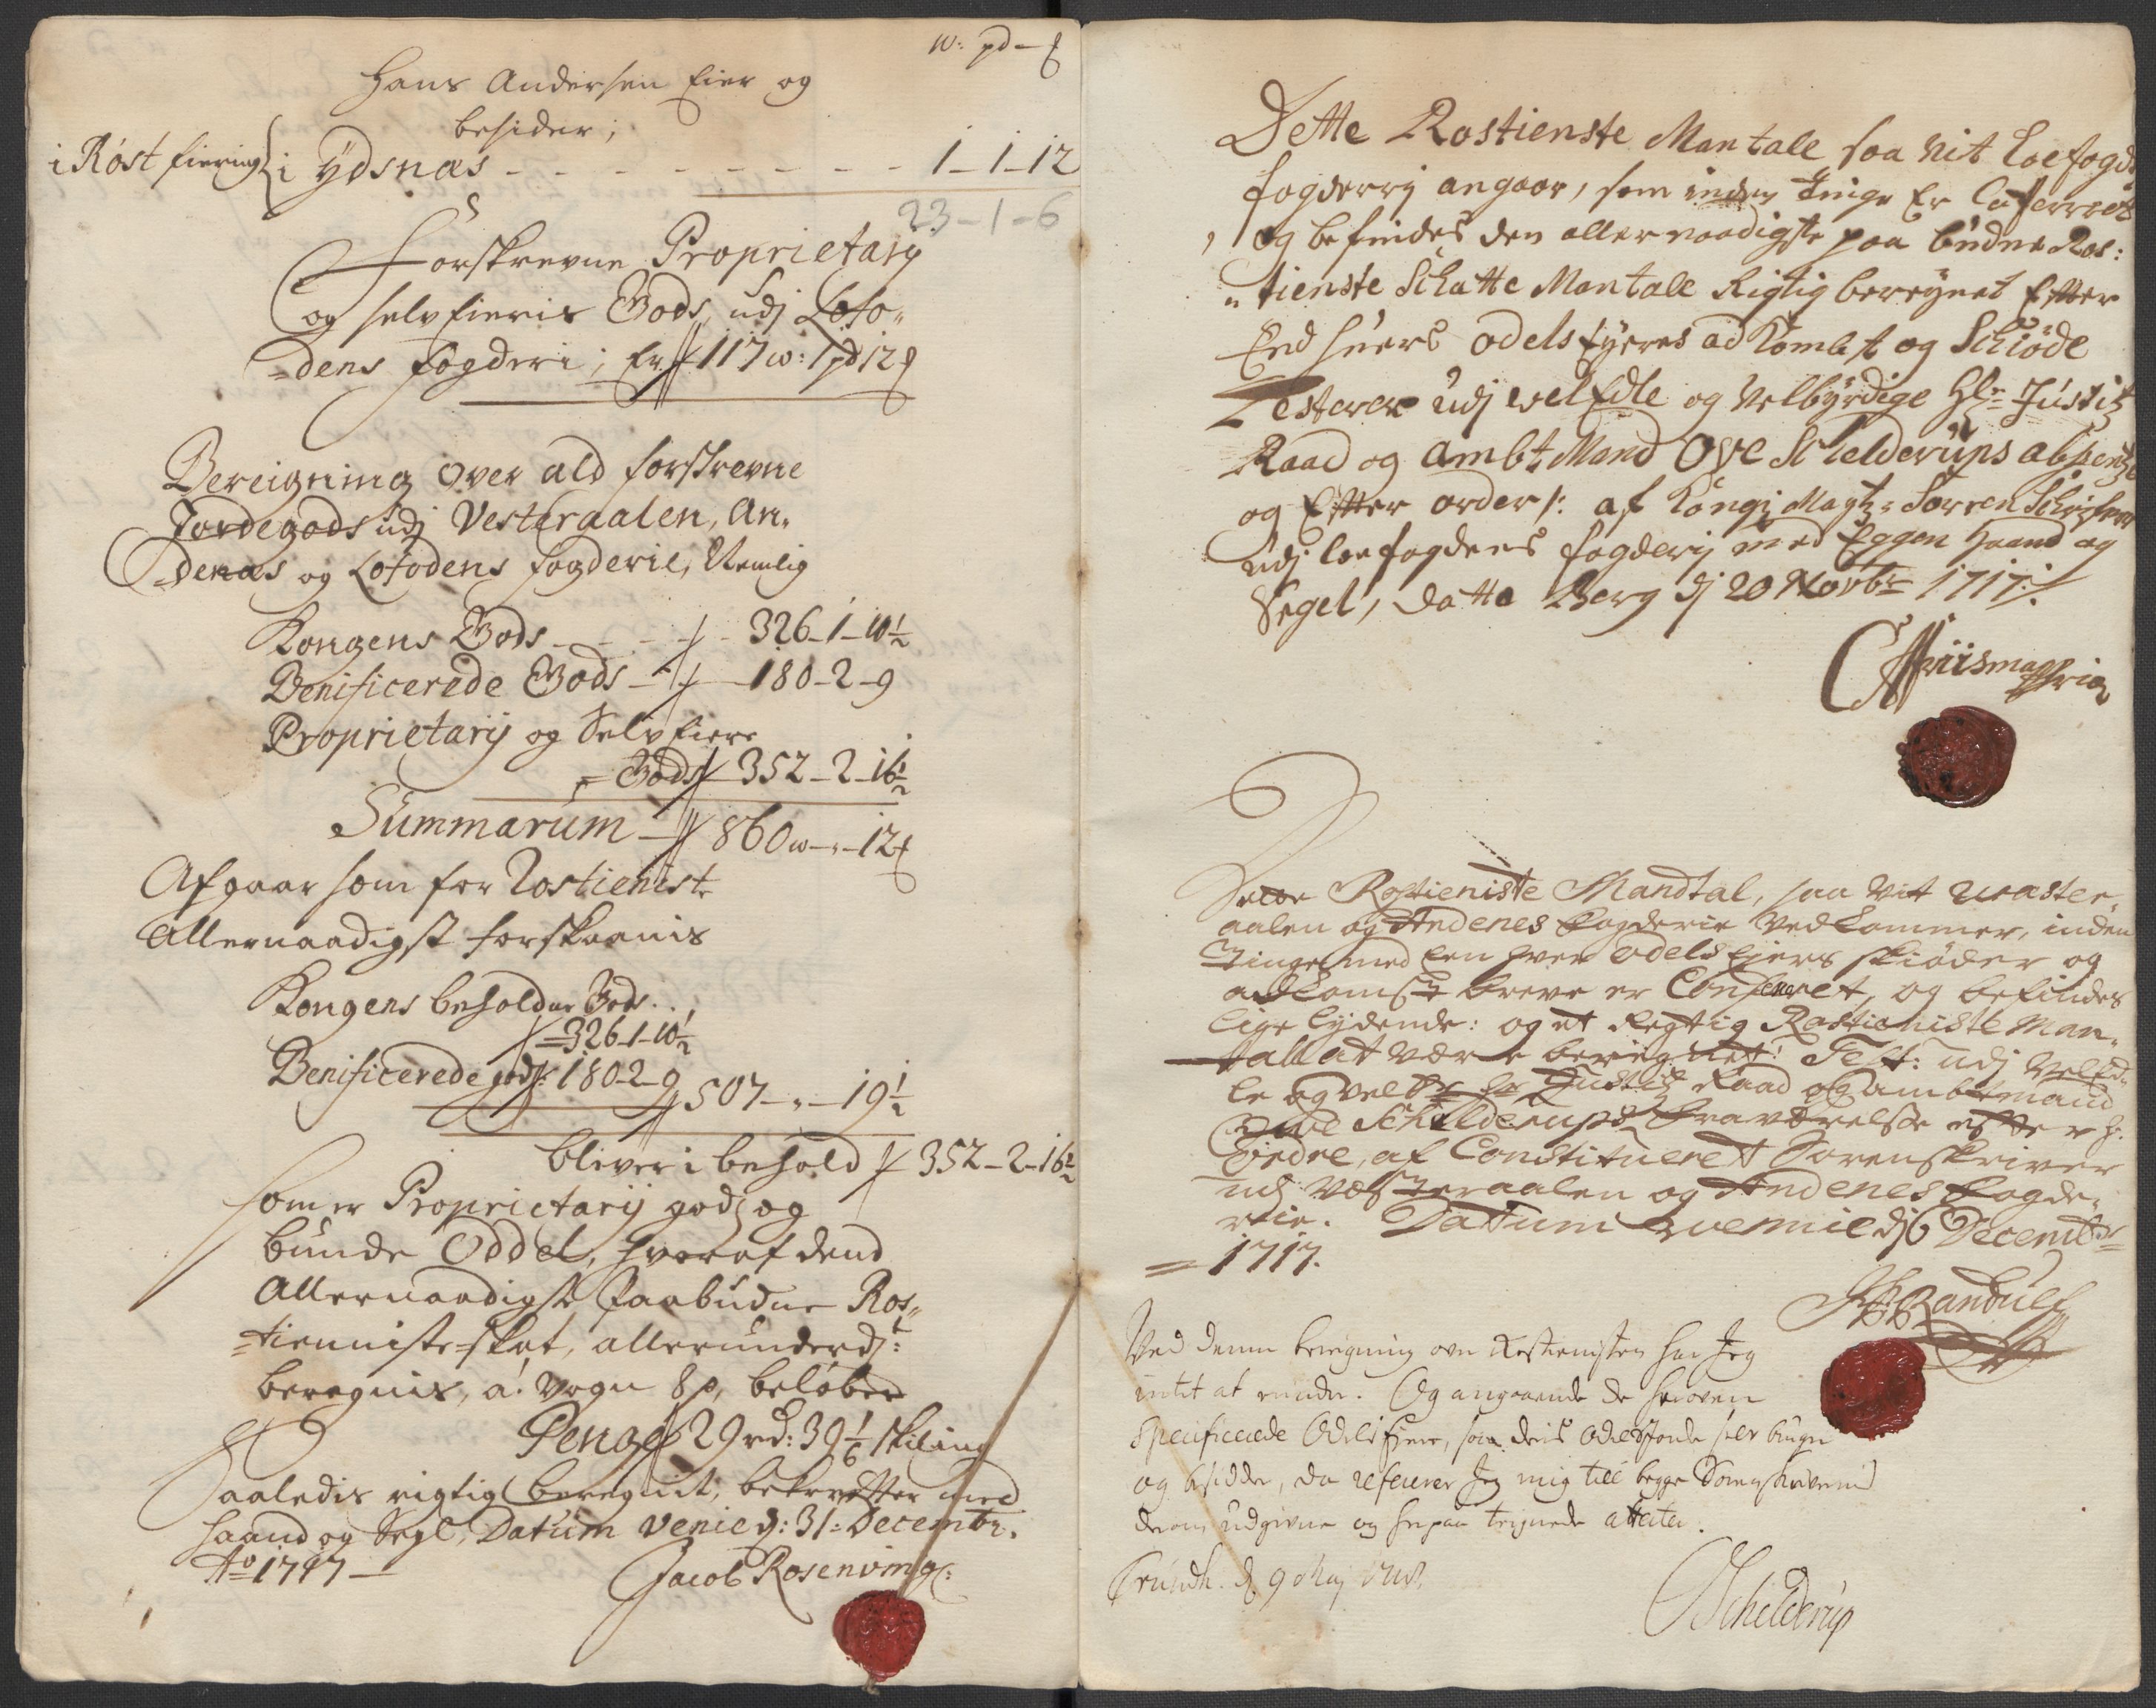 w: pd -
Hans Andersen Eier og
besider;
i Røst fiering { i Ydsnæs - - - - - - - - 1 - 1 - 12
23 - 1 - 6
Forskrevne Proprietarij
og selv Eieris Gods, udj Lofo-
dens fogderi; Er 117 w: 1 pd 12
Bereigning over ald forskrevne
Jordegods udj Vesteraalen, An-
denæs og Lofodens fogderie, Nemlig
Kongens Gods - - - 326 - 1 - 10½
Benificerede Gods - 180 - 2 - 9
Proprietarij og Selv Eiere
Gods 352 - 2 - 16½
Summarum - 860 w - " - 12
Afgaar som for Rostienist
Allernaadigst forskaanis
Kongens beholdne Gods..
326 - 1 - 10½
Benificerede gods: 180 - 2 - 9 507 - " - 19½
bliver i behold 352 - 2 - 16½
som er Proprietarij gods og
bunde Oddel, hvoraf dend
Allernaadigste Paabudne Ros-
tienniste-skat, allerunderd:
beregnis, a: Vogn 8 s, beløber
Penge 29 rd: 39 1/6 skiling
Saaledis rigtig beregnit, bekrefter med
haand og Segl, Datum Venie d: 31: Decembr.
Ao 1717 -
Jacob Rosenving:
Dette Rostienste Mantall saa vit Loefogd
fogderrij angaar, som inden Tinge Er Cafferret
og befindes den allernaadigste paa budne Ros:
tienste Schatte Mantall Rigtig bereynet Etter
End huers odels Eyeres ad Komst og Schiøde
Testerer udj welEdle og Velbyrdige Hr Justitz
Raad og Ambt Mand Ove Schelderups absentz
og Etter order /: af Kongl Maytz: Sorren Schrifver
udj loefogdens fogderij med Eggen Haand og
Segel, datte Berg dj 20 Novbr 1717 /.
CFriis
Dette Rostieniste Mandtal, saa vit Wæster-
aalen og Andenes Fogderie Vedkommer, inden
Tinge med Een hver Odels Ejers skiøder og
adkomste breve er Confereret, og befindes
lige lydende: og et Regtig Rostieniste Man-
tall at være beregnet: Test: udj VelEd-
le og velbr Hr Justitz Raad og Ambtmand
Ove Schelderups Fraværelse efter h:
Ordre, af Constitueret Sorenskriver
udj Væsteraalen og Andenes Fogde-
rie. Datum dj 6 Decembr
1717.
Randulf
Ved denne beregning over Rostienisten har Jeg
intet at erindre. Og angaaende de heroven
specificerede Odels Eiere, som deris Odels Jorder selv bruger
og besidder, da refererer Jeg mig till begge Sorenskrivernes
derom udgivne og herpaa tegnede attester.
Trundh. d. 9 Maj 1718.
OSchelderup